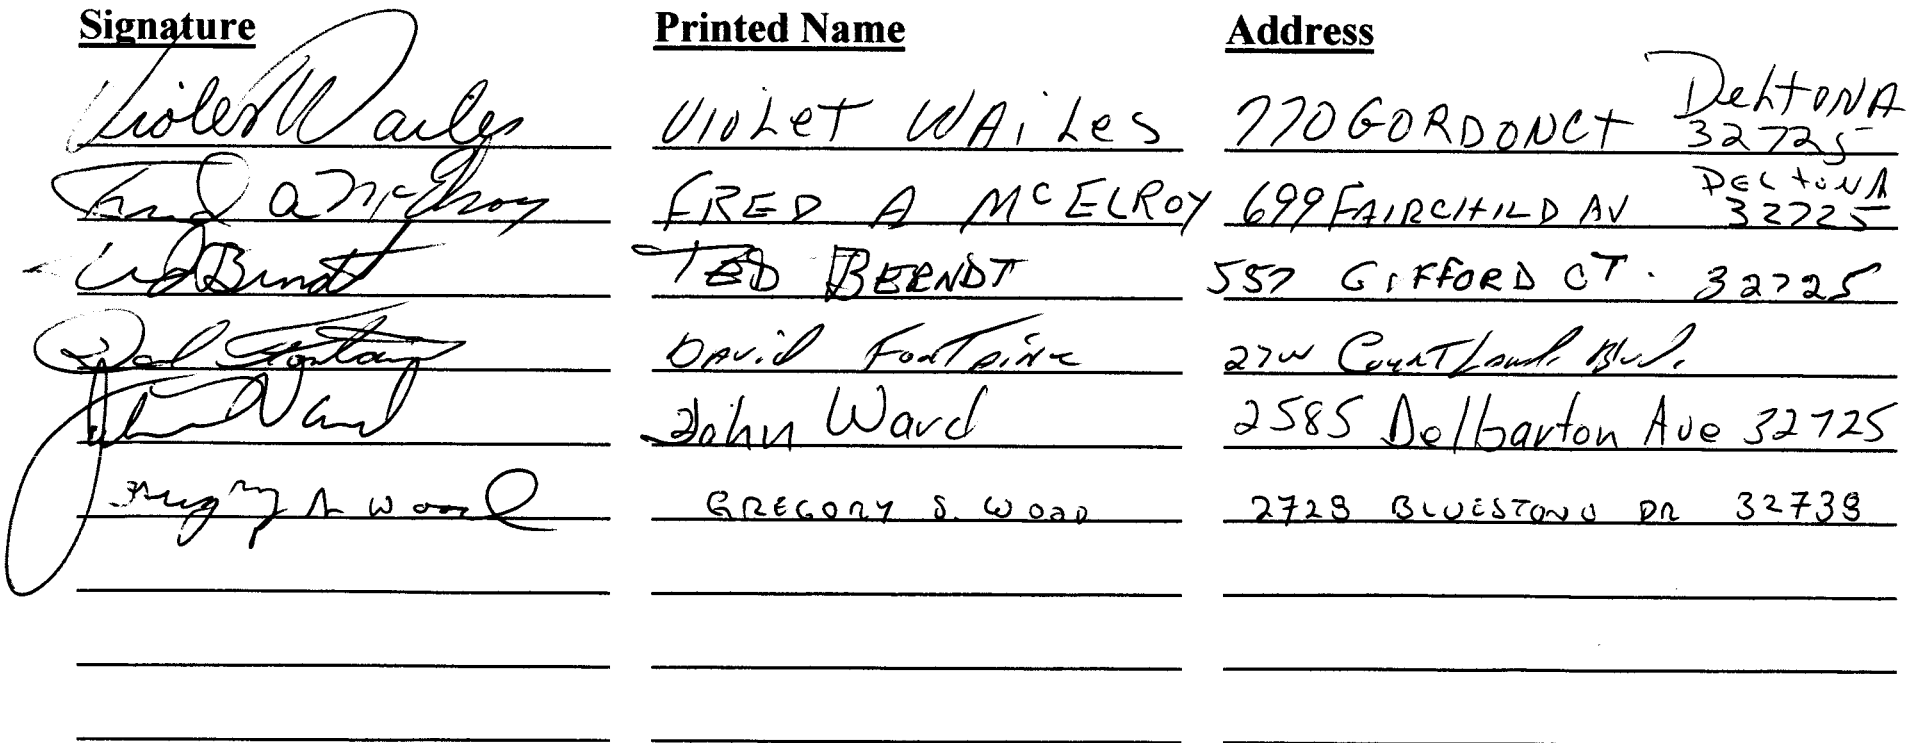 Signature Printed Name Address
Violet Wailes VIOLET WAILES 770 GORDON CT DELTONA 32725
Fred A McElroy FRED A McELROY 699 FAIRCHILD AV DELTONA 32725
Ted Berndt TED BERNDT 557 GIFFORD CT. 32725
David Fontaine David Fontaine 27W Courtland Blvd.
John Ward John Ward 2585 Delbarton Ave 32725
Gregory S Wood GREGORY S. WOOD 2728 BLUESTONE DR 32738